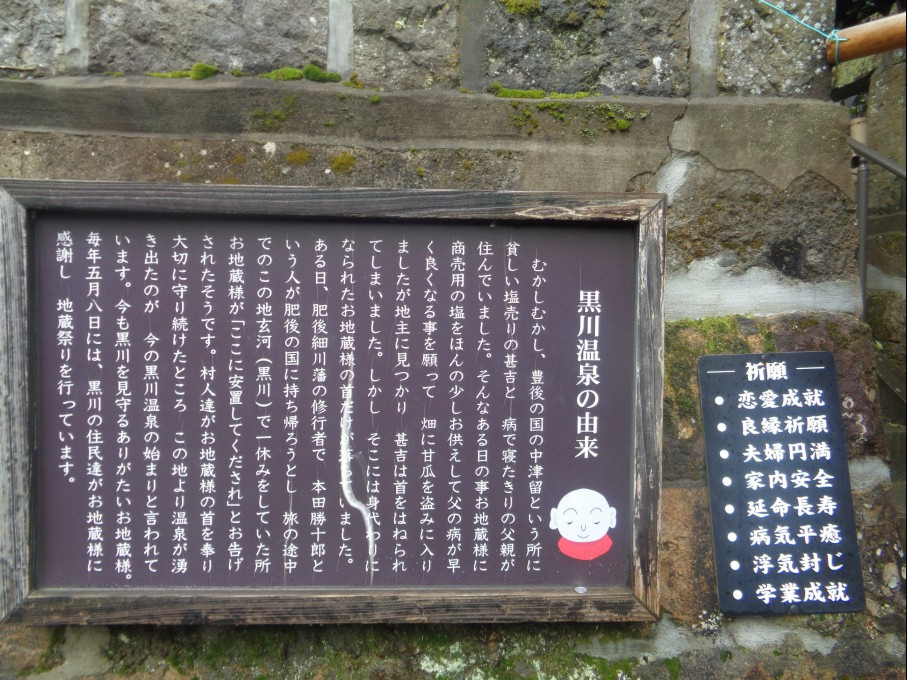 黒川温泉の由来
むかしむかし、豊後の国の中津留という所に
貧しい塩売りの甚吉と 病で寝たきりの父親が
住んでいました。そんなある日の事お地蔵様に
商売用の塩をほんの少しお供えして父の病が早
く良くなる事を願って 畑に甘瓜を盗みに入り
ましたが地主に見つかり 甚吉は首をはねられ
てしまいました。しかし そこには身代わりに
なられたお地蔵様の首だけが落ちていました。
ある日、肥後細川藩の修行者で 本田勝十郎と
いう人が肥後の国に持ち帰ろうとし 旅の途中
でのこの地玄河(黒川)で一休みをしていた所
お地蔵様が「ここに安置してくだされ」とお告げ
されたそうです。村人達がお地蔵様の首を奉り
大切に守り続けたところ この地より温泉が湧
き出たのが 今の黒川温泉の始まりと言われて
います。今も黒川を見守るありがたいお地蔵様。
毎年五月八日には、黒川の住民達がお地蔵様に
感謝し 地蔵祭りを行っています。
祈願
● 恋愛成就
● 良縁祈願
● 夫婦円満
● 家内安全
● 延命長寿
● 病気平癒
● 浮気封じ
● 学業成就